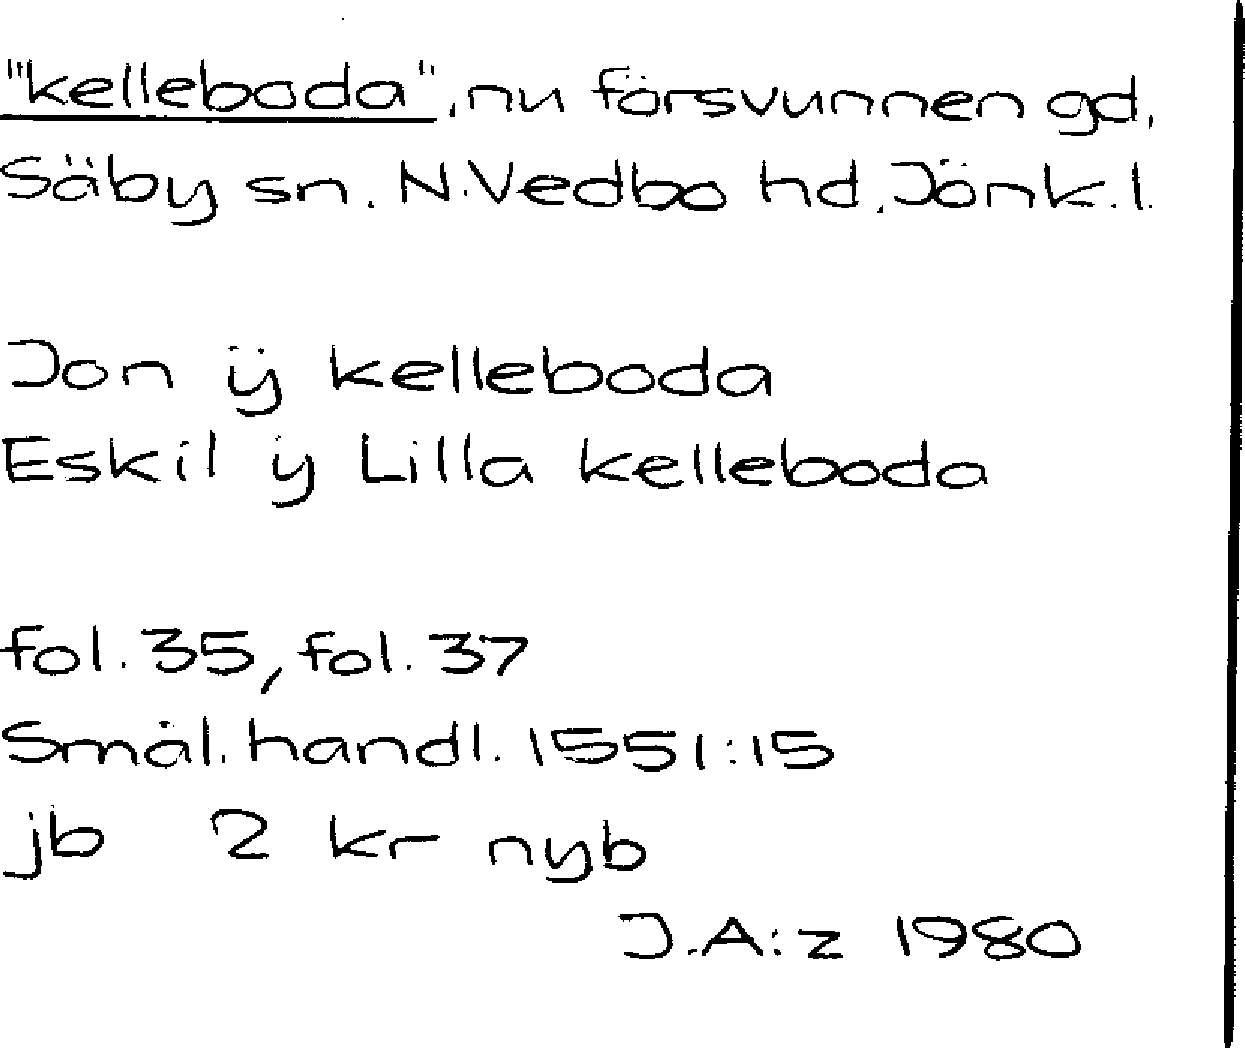 "kelleboda", nu försvunnen gd,
Säby sn. N.Vedbo hd. Jönk.l.
Jon ÿ kelleboda
Eskil ÿ Lilla kelleboda
fol. 35, fol. 37
Smål. handl. 1551:15
jb 2 kr nyb
J.A:z 1980